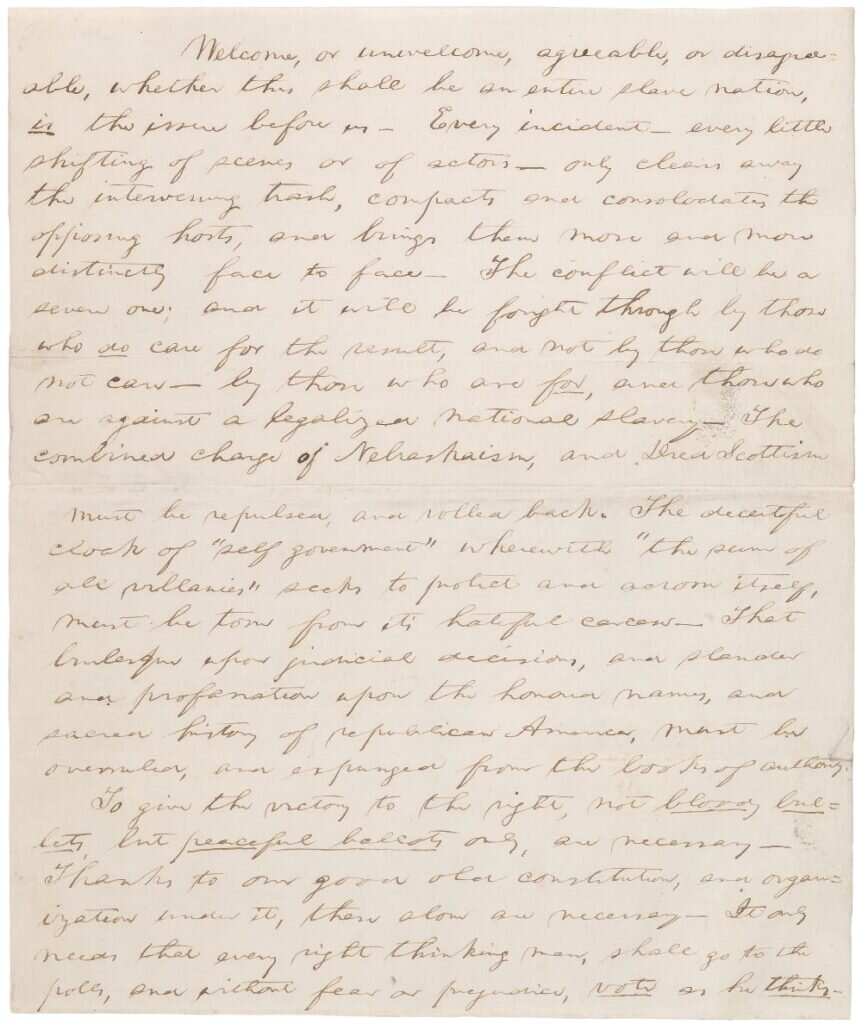 Welcome, or unwelcome, agreeable, or disagree=
able, whether this shall be an entire slave nation,
is the issue before us— Every incident— every little
shifting of scenes or of actors— only clears away
the intervening trash, compacts and consolidates the
opposing hosts, and brings them more and more
distinctly face to face— The conflict will be a
severe one; and it will be fought through by those
who do care for the result, and not by those who do
not care— by those who are for, and those who
are against a legalized national slavery— The
combined charge of Nebraskaism, and Dred Scottism
must be repulsed, and rolled back. The deceitful
cloak of "self government" wherewith "the sum of
all villanies" seeks to protect and adorn itself,
must be torn from it's hateful carcass— That
burlesque upon judicial decisions, and slander
and profanation upon the honored names, and
sacred history of republican America, must be
overruled, and expunged from the books of authority.
To give the victory to the right, not bloody bul=
lets, but peaceful ballots only, are necessary—
Thanks to our good old constitution, and organ=
ization under it, these alone are necessary— It only
needs that every right thinking man, shall go to the
polls, and without fear or prejudice, vote as he thinks—